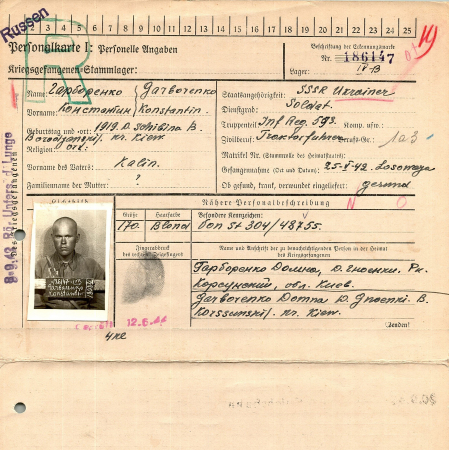 Russen
1 2 3 4 5 6 7 8 9 10 11 12 13 14 15 16 17 18 19 20 21 22 23 24 25
R
19
Personalkarte I: Personelle Angaben
Kriegsgefangenen-Stammlager:
Beschriftung der Erkennungsmarke
Nr. 186147
Lager: IV-B
Name: Гарборенко Garborenko
Vorname: Константин Konstantin.
Geburtstag und -ort: 1919 D. Schibina B.
Borodjanski/ kr. Kiew
Religion:
Vorname des Vaters: Kalin.
Familienname der Mutter: ?
Staatsangehörigkeit: SSSR Ukrainer
Dienstgrad: Soldat.
Truppenteil: Inf Reg. 593. Komp. usw.:
Zivilberuf: Traktorfuhrer Berufs-Gr.: 103
Matrikel Nr. (Stammrolle des Heimatstaates):
Gefangennahme (Ort und Datum): 25-V-42. Losowaja
Ob gesund, krank, verwundet eingeliefert: gesund
8.9.42 Rö. Unters. d. Lunge
des Kriegsgefangenen
Lichtbild
Nähere Personalbeschreibung
Größe Haarfarbe Besondere Kennzeichen:
170. Blond von St 304/48755.
Fingerabdruck
des rechten Zeigefingers
Name und Anschrift der zu benachrichtigenden Person in der Heimat
des Kriegsgefangenen
Гарборенко Домна, Д. Гноенки. Рн.
Корсунский, обл. Киев.
Garborenko Domna D. Gnoenki. B.
Korssunski/ kr. Kiew.
12.6.44
4ке
(Wenden!)